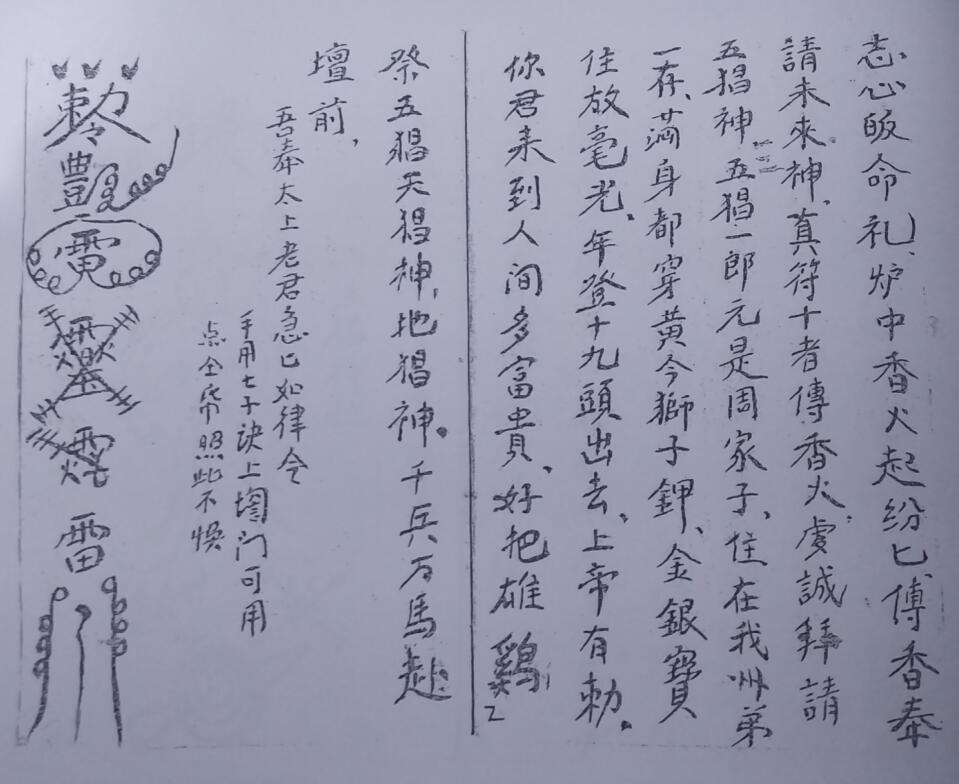 志心皈命礼、炉中香火起纷匕傅香奉
請未來神、真符十者傳香火、虔誠拜請
五猖神、五猖一郎元是周家子、住在我州第
一存、满身都穿黄今獅子鉀、金銀寶
住放毫光、年登十九頭出去、上帝有勅。
你君来到人间多富貴、好把雄鷄
祭五猖天猖神、地猖神。千兵万馬赴
壇前，
吾奉太上老君急匕如律令
手用七十诀上塆门可用
点全帋照此不悞
勅
豔
電
靈
雷